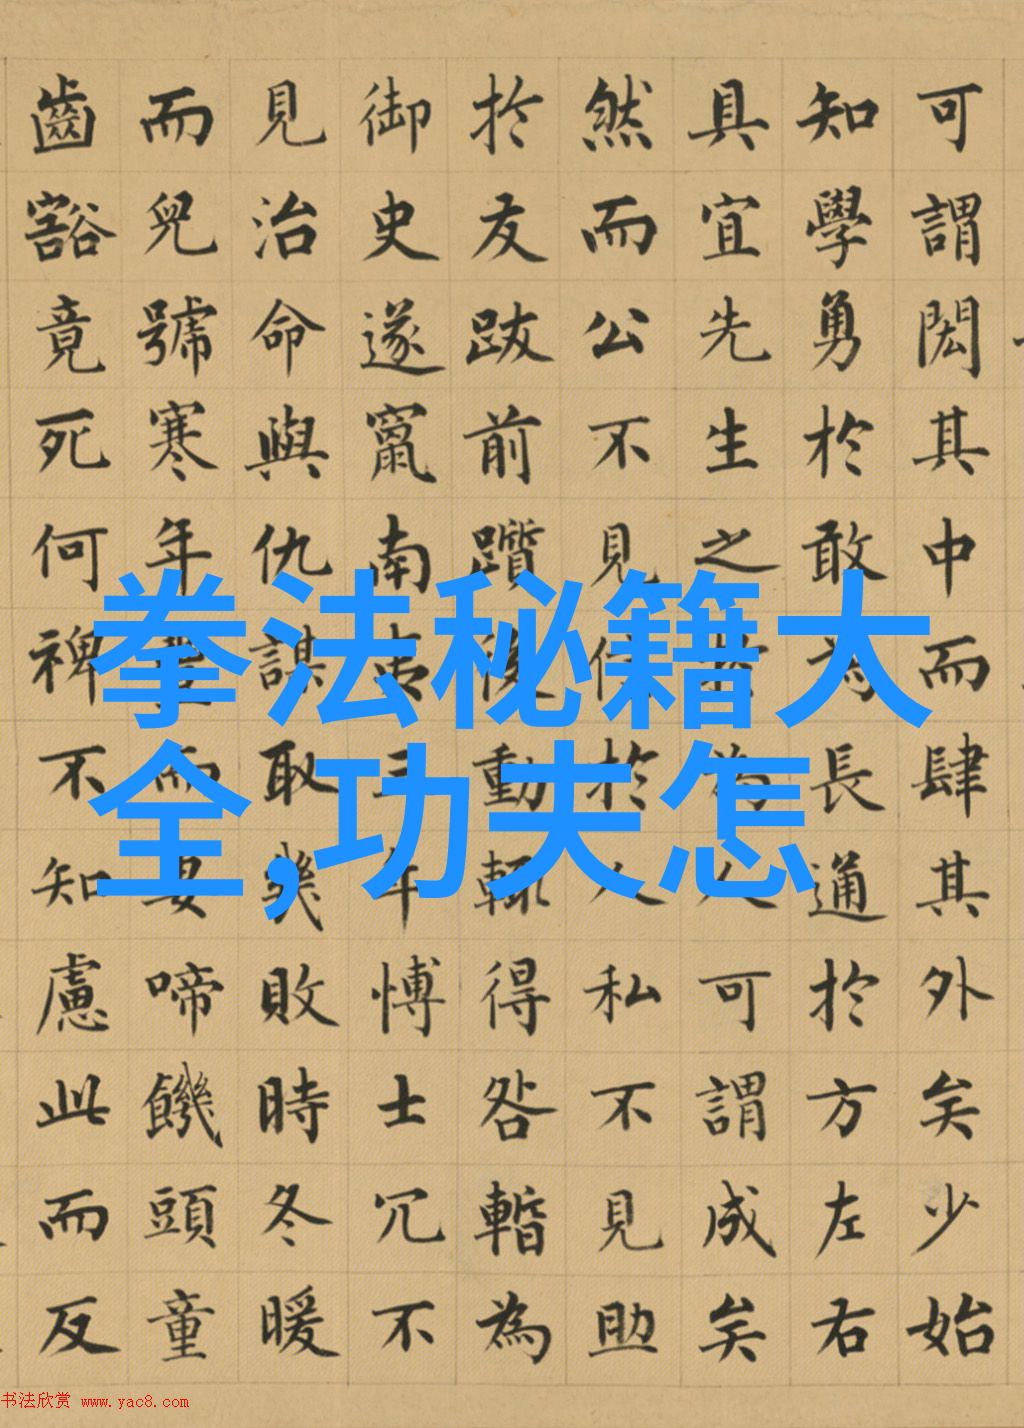 可謂閎其中而肆其外矣少始
知學勇於敢為長通於方左右
具宜先生之於為人可謂成矣
然而公不見信於人私不見助
於友跋前躓後動輒得咎暫為
御史遂竄南夷三年愽士冗不
見治命與仇謀取幾敗時冬暖
而兒號寒年豐而妻啼饑頭童
齒豁竟死何裨不知慮此而反
拳法秘籍大
全,功夫怎
书法欣赏 www.yac8.com